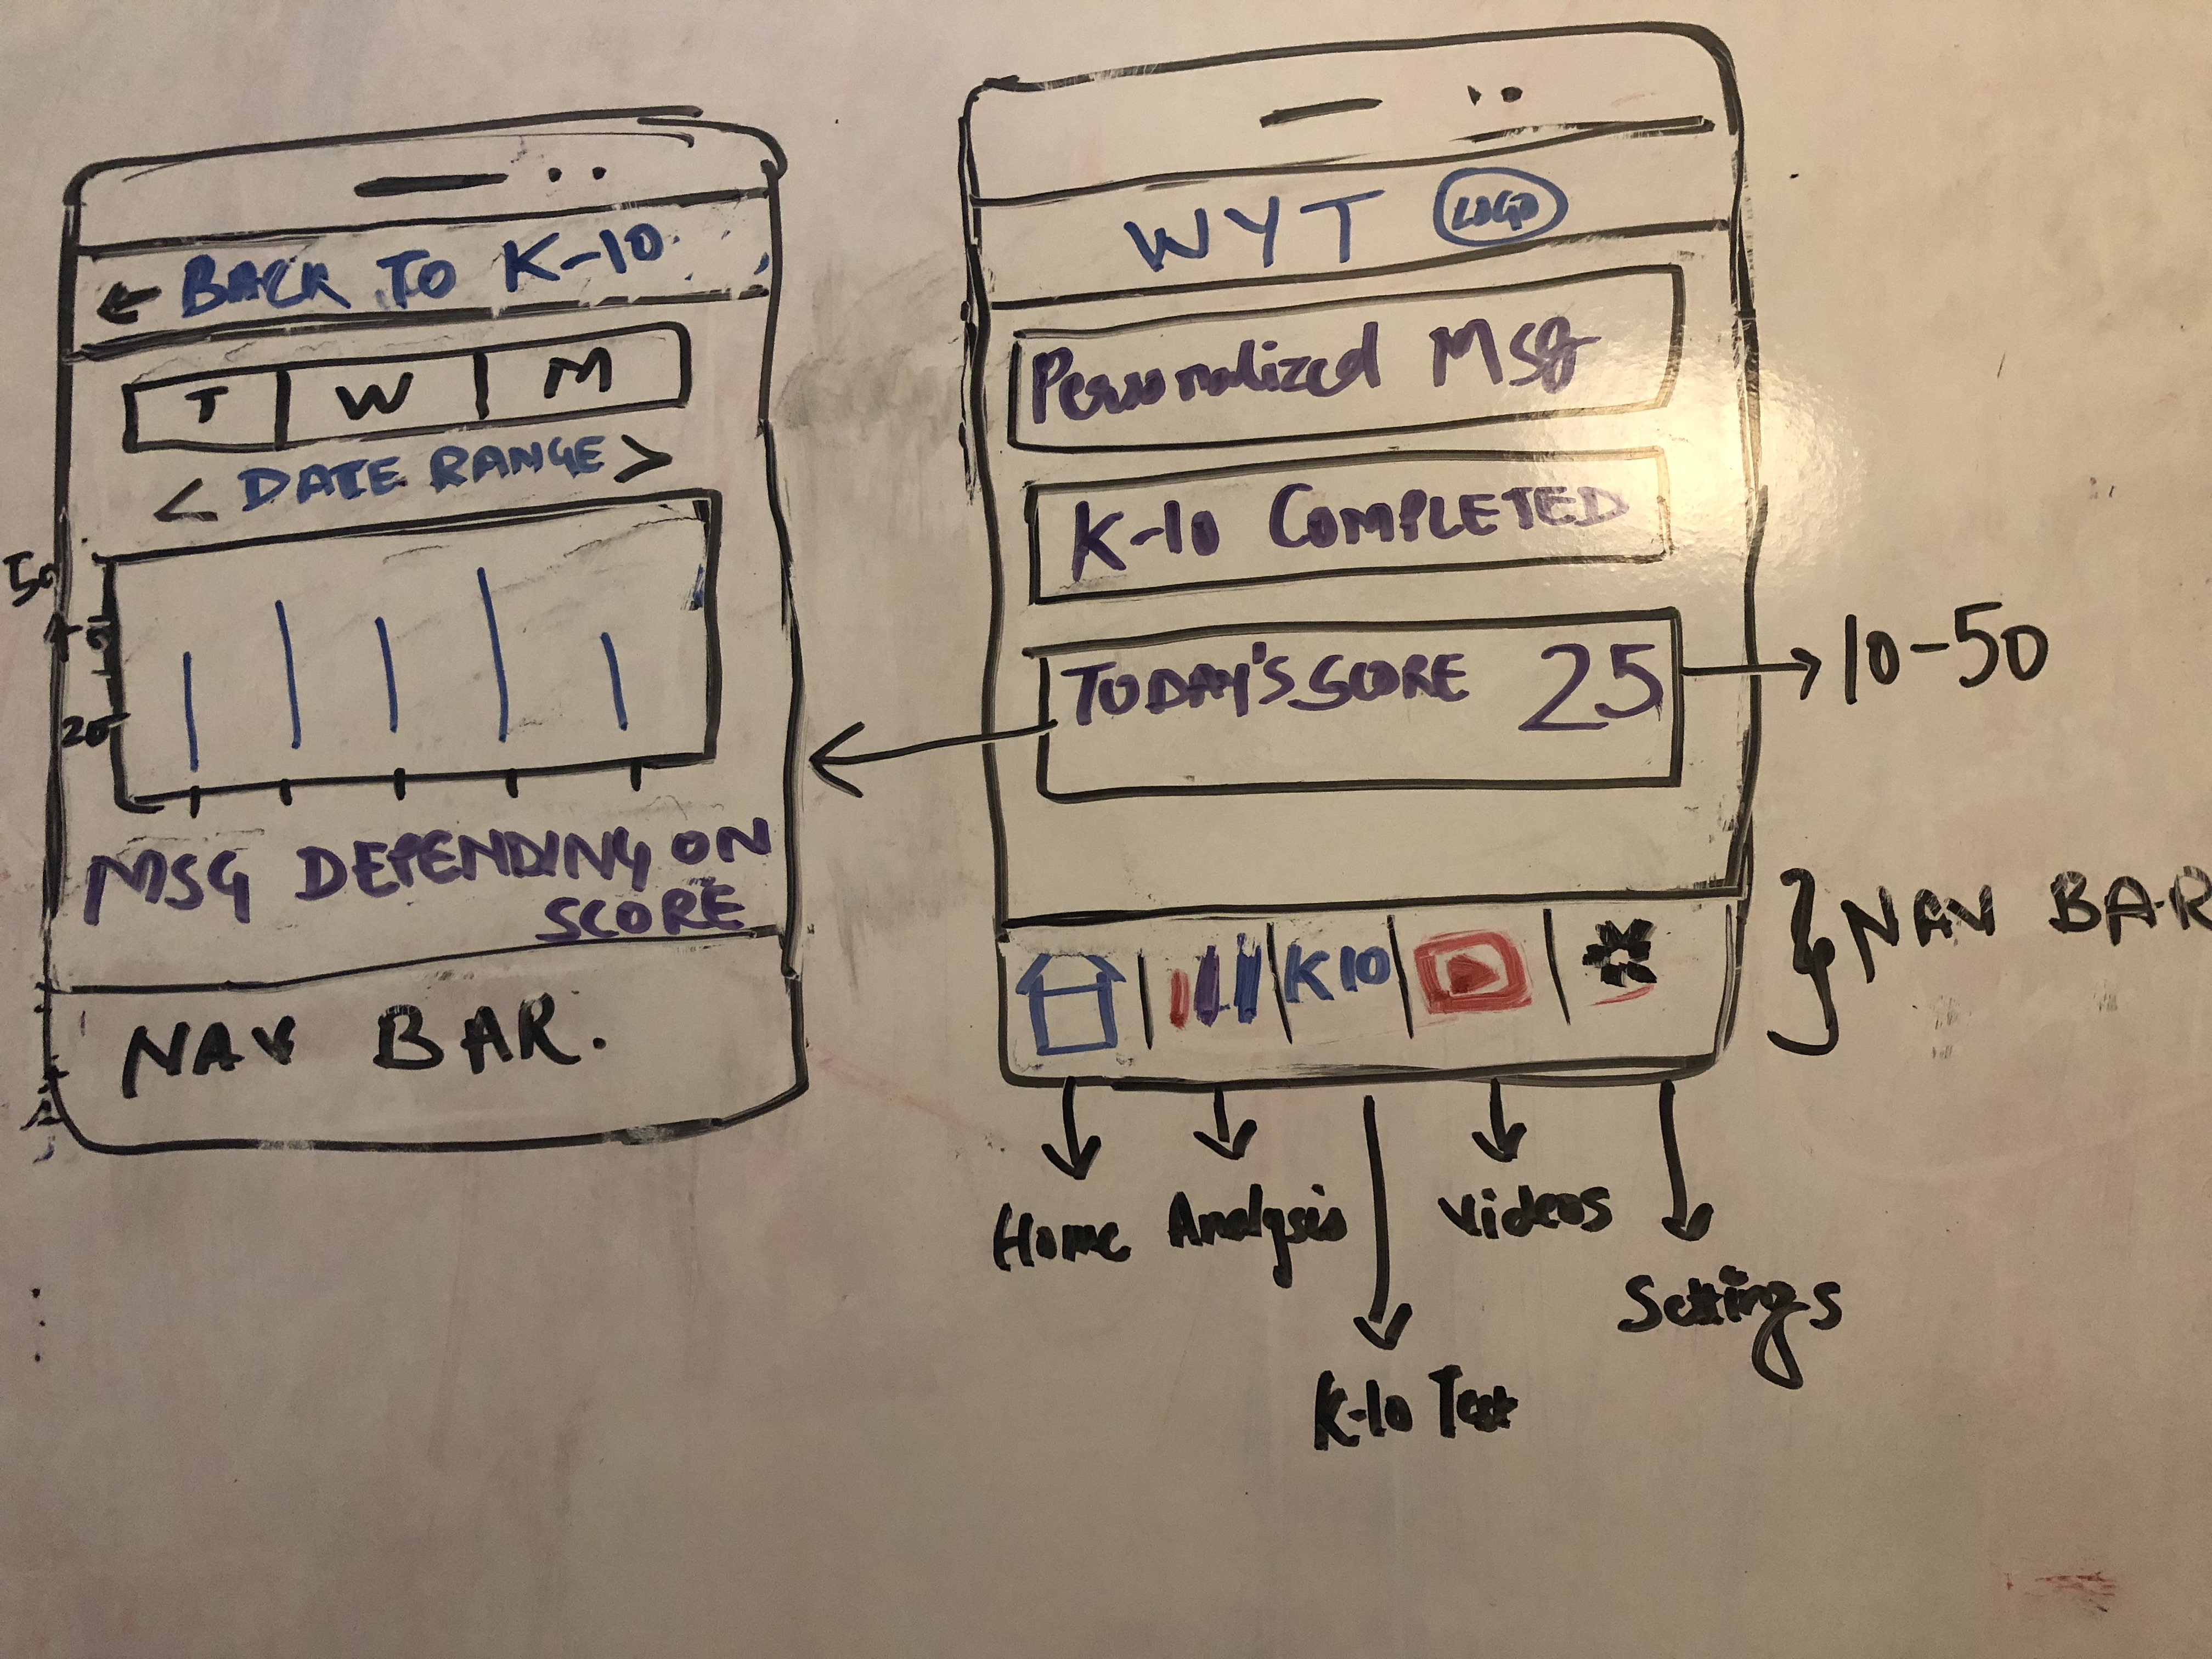 ← BACK TO K-10
T W M
< DATE RANGE >
50
20
MSG DEPENDING ON
SCORE
NAV BAR.
WYT LOGO
Personalized Msg
K-10 COMPLETED
TODAY'S SCORE 25
10-50
K10
NAV BAR
Home Analysis Videos
Settings
K-10 Test